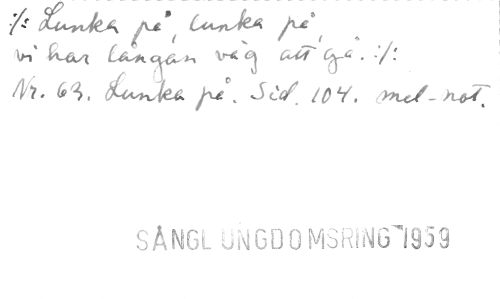 :/: Lunka på, lunka på,
vi har långan väg att gå. :/:
Nr. 63. Lunka på. Sid. 104. mel-not.
SÅNGL UNGDOMSRING 1959